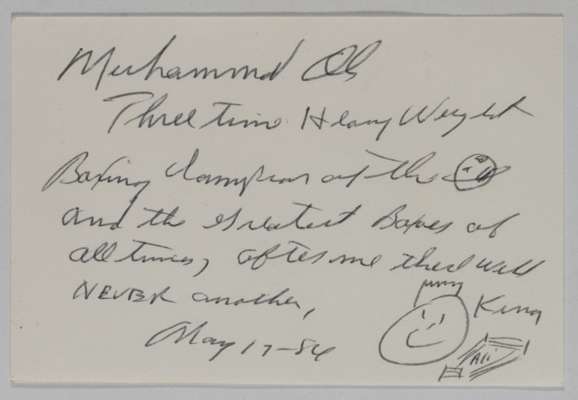 Muhammad Ali
Three time Heavy Weight
Boxing Champion of the
and the greatest Boxer of
all times, after me their will
NEVER another,
May 17-84
King
Ali